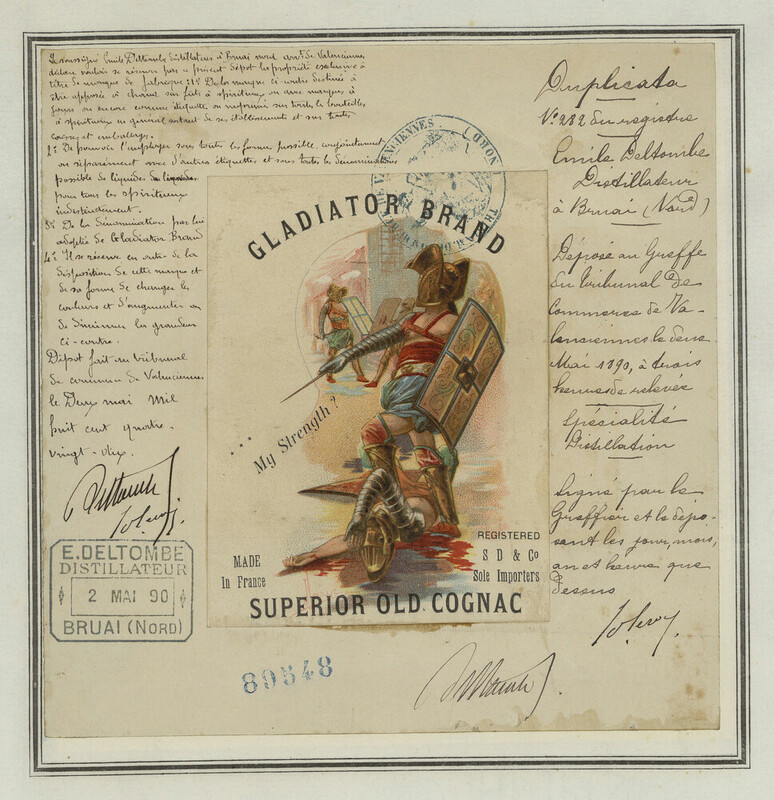 Je soussigné Emile Deltombe distillateur à Bruai nord arr.t de Valenciennes
déclare vouloir se réserver par le présent dépôt la propriété exclusive à
titre de marque de fabrique: 1.º De la marque ci contre destinée à
être apposée à chaud sur fûts à spiritueux ou aux marques à
jours ou encore comme étiquette ou imprimé sur toutes les bouteilles
à spiritueux en général sortant de ses établissements et sur toutes
caisses et emballages.
2.º De pouvoir l'employer sous toutes les formes possible, conjointement
ou séparément avec d'autres étiquettes et sous toutes les dénominations
possible de liquides
pour tous les spiritueux
indistinctement.
3.º De la dénomination par lui
adoptée de Gladiator Brand
4.º Il se réserve en outre de la
disposition de cette marque et
de sa forme de changer les
couleurs et d'augmenter ou
de diminuer les grandeurs
ci-contre.
Dépot fait au tribunal
de commerce de Valenciennes
le Deux mai Mil
huit cent quatre-
vingt-dix.
E. DELTOMBE
DISTILLATEUR
2 MAI 90
BRUAI (NORD)
VALENCIENNES (NORD)
GLADIATOR BRAND
... My Strength?
MADE
In France
REGISTERED
S D & Co
Sole Importers
SUPERIOR OLD COGNAC
89548
Duplicata
Nº 282 du registre
Emile Deltombe
Distillateur
à Bruai (Nord)
Déposé au Greffe
du Tribunal de
Commerce de Va-
lenciennes le deux
Mai 1890, à trois
heures de relevée
Spécialité
Distillation
Signé par le
Greffier et le dépo-
sant les jour, mois,
an et heure que
dessus